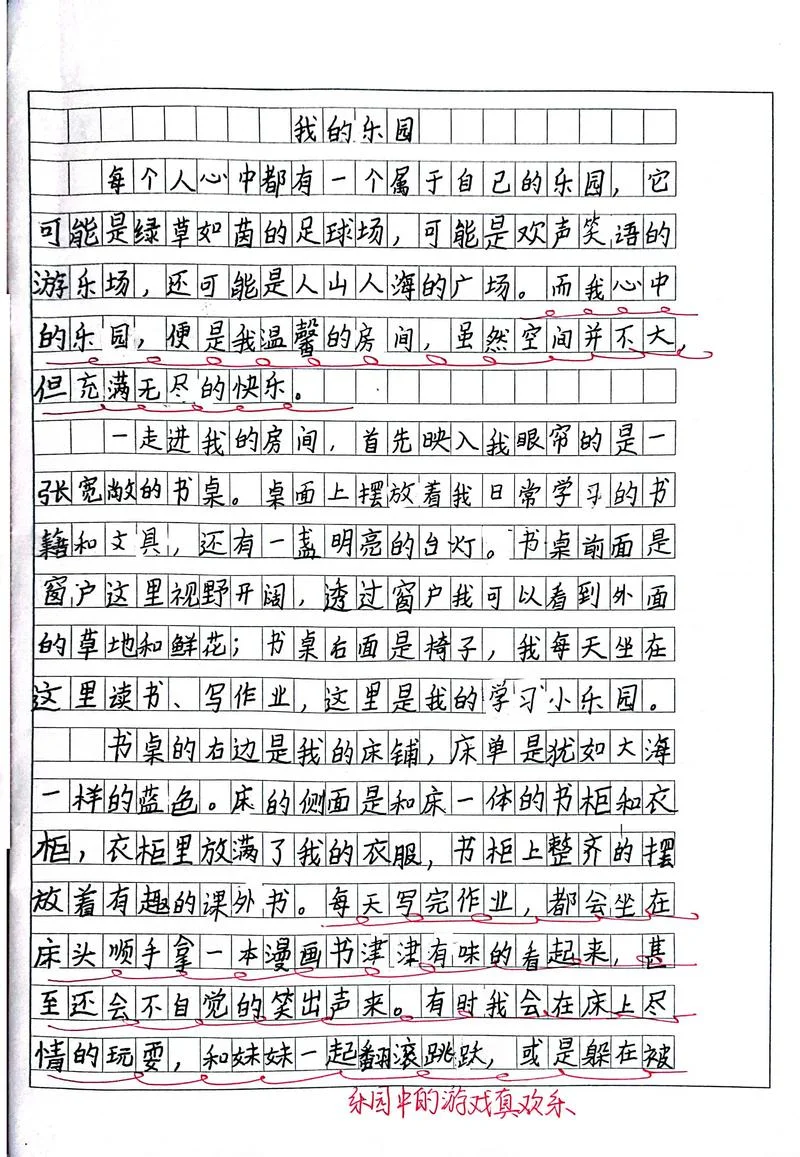 我的乐园
每个人心中都有一个属于自己的乐园，它
可能是绿草如茵的足球场，可能是欢声笑语的
游乐场，还可能是人山人海的广场。而我心中
的乐园，便是我温馨的房间，虽然空间并不大，
但充满无尽的快乐。
一走进我的房间，首先映入我眼帘的是一
张宽敞的书桌。桌面上摆放着我日常学习的书
籍和文具，还有一盏明亮的台灯。书桌前面是
窗户这里视野开阔，透过窗户我可以看到外面
的草地和鲜花；书桌右面是椅子，我每天坐在
这里读书、写作业，这里是我的学习小乐园。
书桌的右边是我的床铺，床单是犹如大海
一样的蓝色。床的侧面是和床一体的书柜和衣
柜，衣柜里放满了我的衣服，书柜上整齐的摆
放着有趣的课外书。每天写完作业，都会坐在
床头顺手拿一本漫画书津津有味的看起来，甚
至还会不自觉的笑出声来。有时我会在床上尽
情的玩耍，和妹妹一起翻滚跳跃，或是躲在被
乐园中的游戏真欢乐